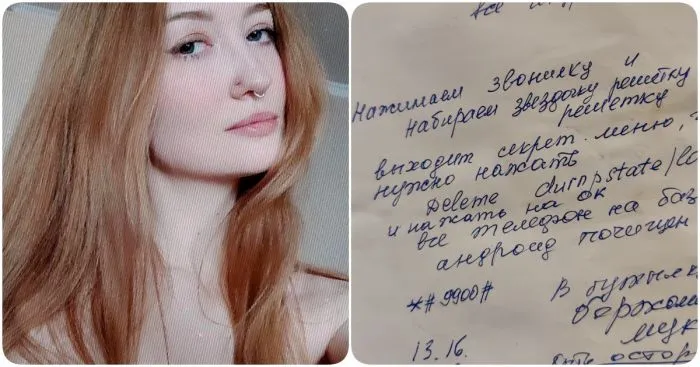 все
Нажимаем звонилку и
набираем звездочку решетку
решетку
выходит секрет. меню,
нужно нажать
Delete dumpstate/lo
и нажать на ок
все телефон на баз
андроид почищен
*#9900#
В бутылк
13.16.